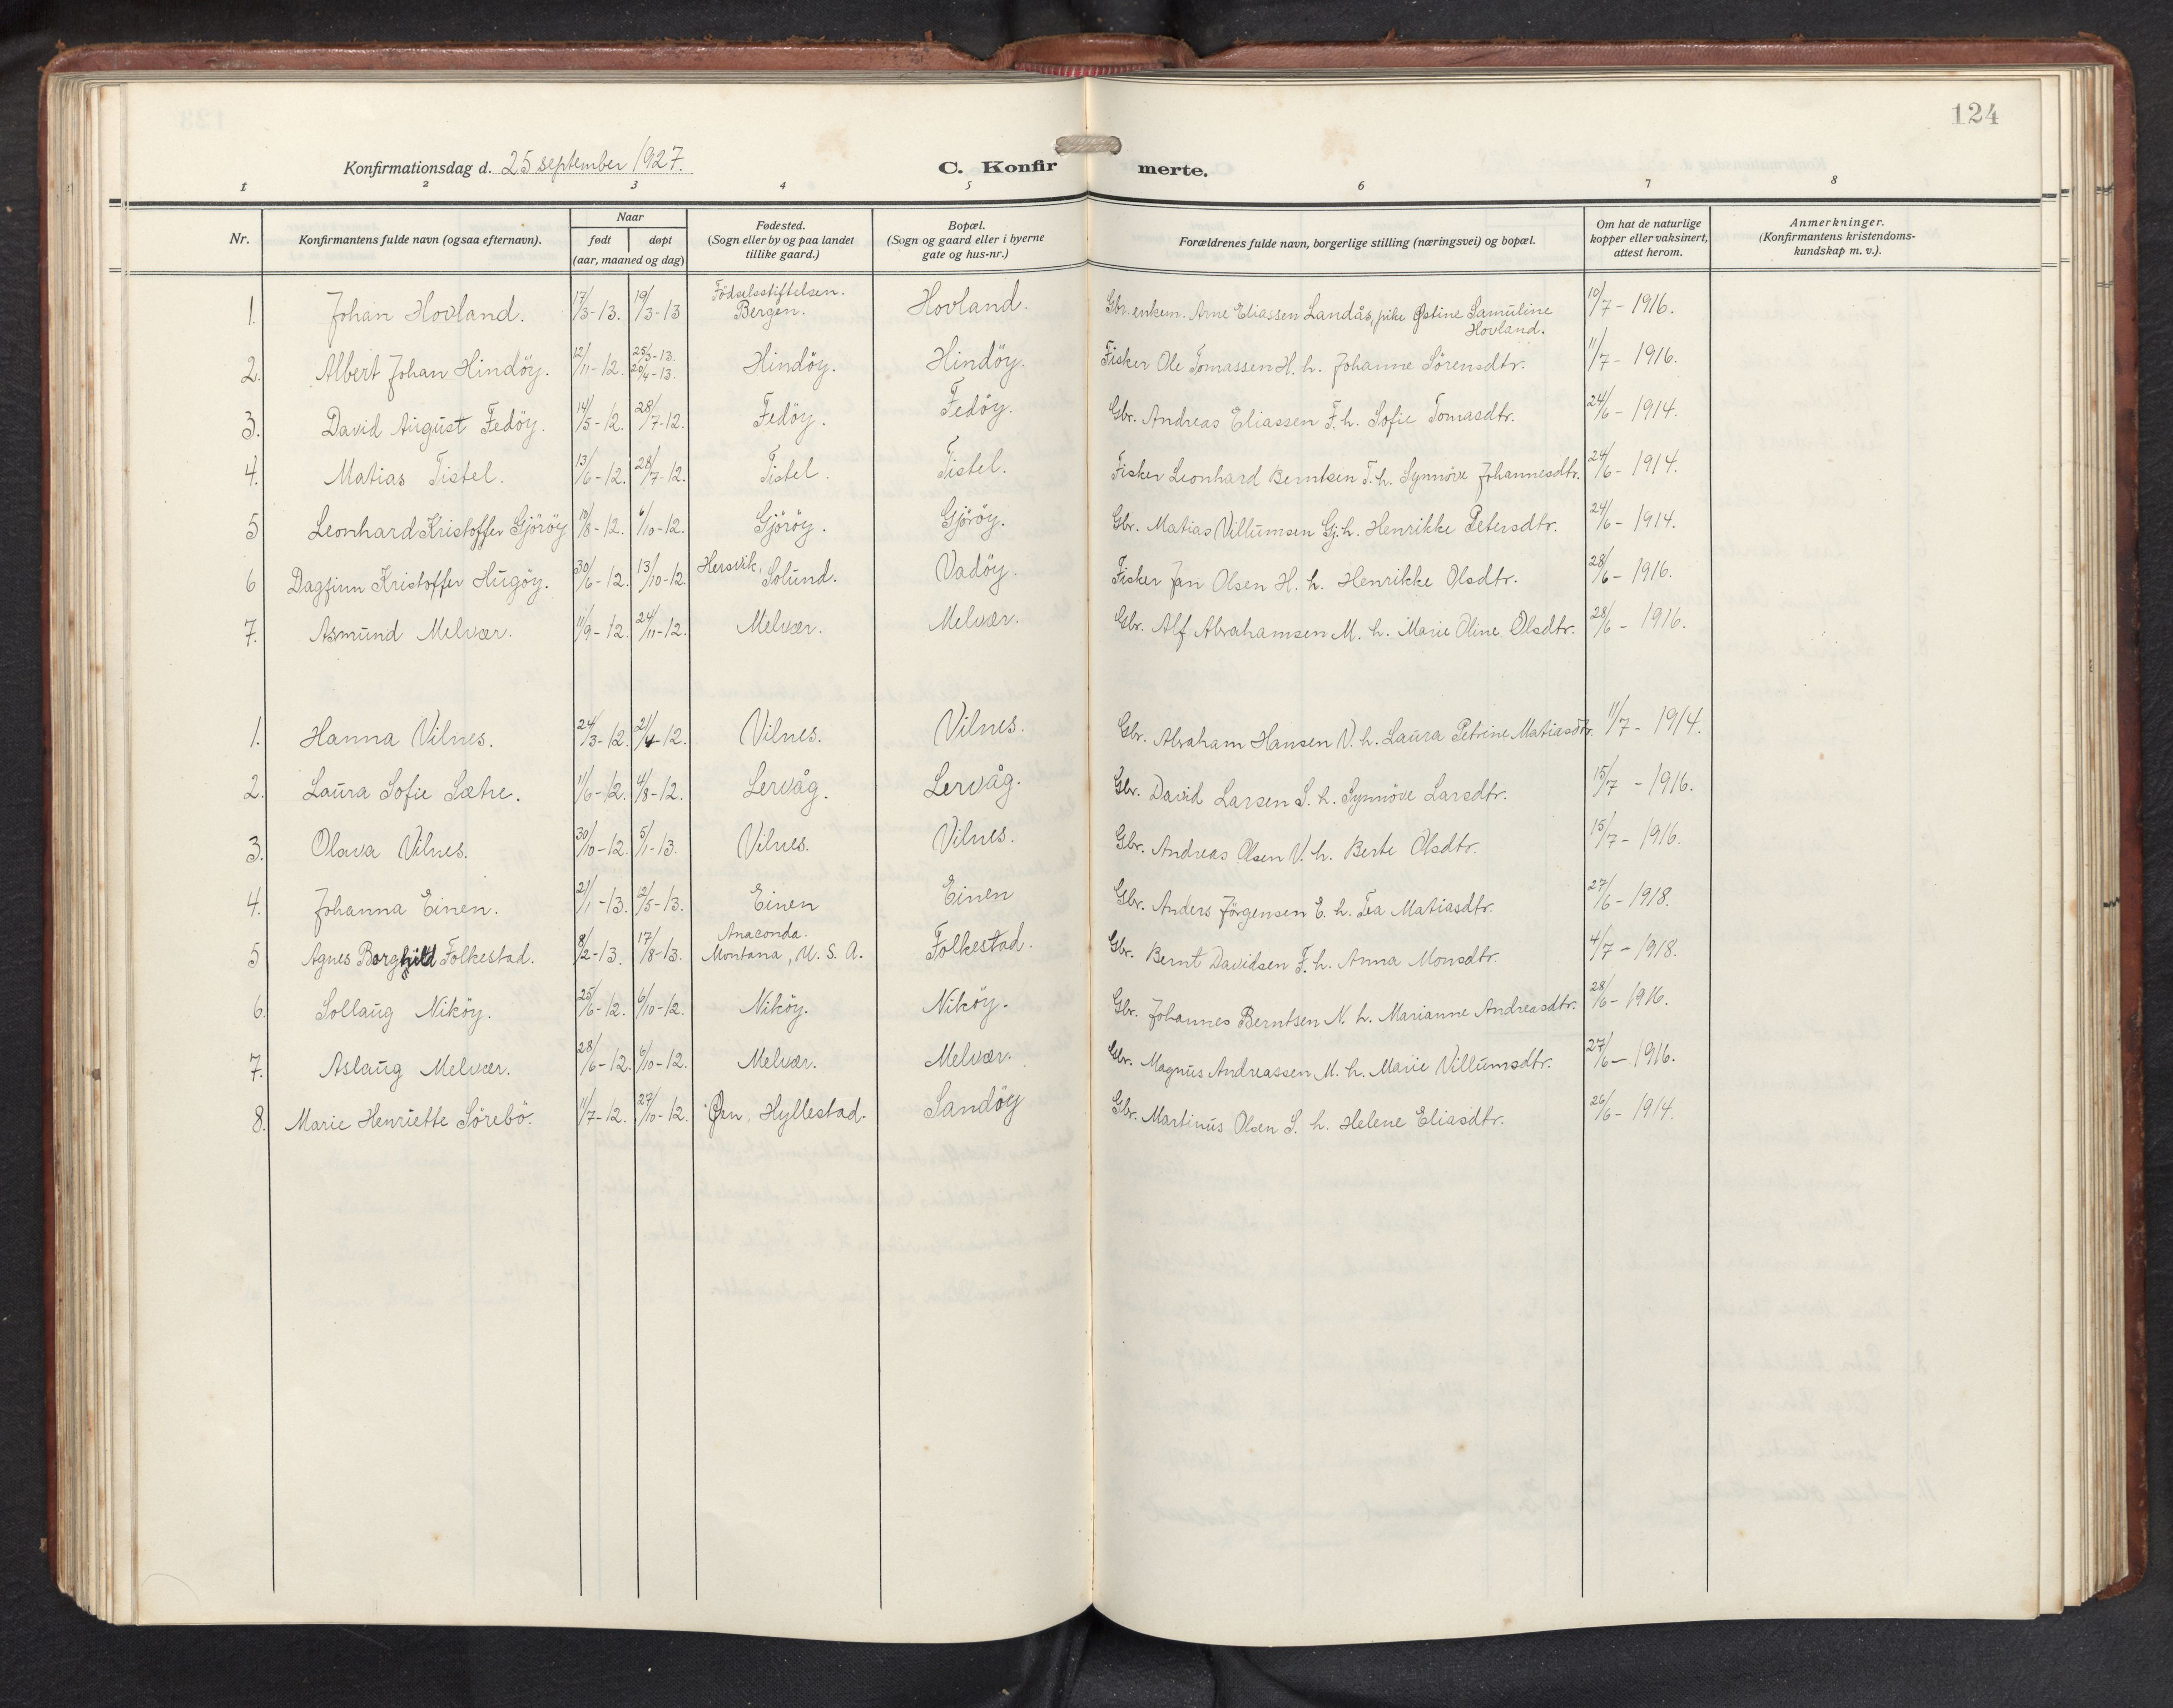 124
Konfirmationsdag d. 25 september 1927.
C. Konfir merte.
1 2 3 4 5 6 7 8
Nr. Konfirmantens fulde navn (ogsaa efternavn). Naar født døpt (aar, maaned og dag) Fødested. (Sogn eller by og paa landet tillike gaard.) Bopæl. (Sogn og gaard eller i byerne gate og hus-nr.) Forældrenes fulde navn, borgerlige stilling (næringsvei) og bopæl. Om hat de naturlige kopper eller vaksinert, attest herom. Anmerkninger. (Konfirmantens kristendoms-kundskap m. v.).
1. Johan Hovland. 17/3-13. 19/3-13 Födselsstiftelsen. Bergen. Hovland. Gbr. enkem. Arne Eliassen Landås, pike Østine Samuline Hovland. 10/7-1916.
2. Albert Johan Hindöy. 12/11-12. 25/3-13. 20/4-13. Hindöy. Hindöy. Fisker Ole Tomassen H. h. Johanne Sörensdtr. 11/7-1916.
3. David August Fedöy. 14/5-12. 28/7-12. Fedöy. Fedöy. Gbr. Andreas Eliassen F. h. Sofie Tomasdtr. 24/6-1914.
4. Matias Tistel. 13/6-12. 28/7-12. Tistel. Tistel. Fisker Leonhard Berntsen T. h. Synnöve Johannesdtr. 24/6-1914.
5 Leonhard Kristoffer Gjöröy 10/8-12. 6/10-12. Gjöröy. Gjöröy. Gbr. Matias Villumsen Gj. h. Henrikke Petersdtr. 24/6-1914.
6 Dagfinn Kristoffer Hugöy. 30/6-12. 13/10-12. Hersvik, Solund. Vadöy. Fisker Jan Olsen H. h. Henrikke Olsdtr. 28/6-1916.
7. Asmund Melvær. 11/9-12. 24/11-12. Melvær. Melvær. Gbr. Alf Abrahamsen M. h. Marie Oline Olsdtr. 28/6-1916.
1. Hanna Vilnes. 24/3-12. 21/4-12. Vilnes. Vilnes. Gbr. Abraham Hansen V. h. Laura Petrine Matiasdtr. 11/7-1914.
2. Laura Sofie Sætre. 11/6-12. 4/8-12. Lervåg. Lervåg. Gbr. David Larsen S. h. Synnöve Larsdtr. 15/7-1916.
3. Olava Vilnes. 30/10-12. 5/1-13. Vilnes. Vilnes. Gbr. Andreas Olsen V. h. Berte Olsdtr. 15/7-1916.
4. Johanna Einen. 21/1-13. 12/5-13. Einen Einen Gbr. Anders Jörgensen E. h. Tea Matiasdtr. 27/6-1918.
5 Agnes Borghild Folkestad. 8/2-13. 17/8-13. Anaconda. Montana, U. S. A. Folkestad. Gbr. Bernt Davidsen F. h. Anna Monsdtr. 4/7-1918.
6. Sollaug Niköy. 25/6-12. 6/10-12. Niköy. Niköy. Gbr. Johannes Berntsen N. h. Marianne Andreasdtr. 28/6-1916.
7. Aslaug Melvær. 28/6-12. 6/10-12. Melvær. Melvær. Gbr. Magnus Andreassen M. h. Marie Villumsdtr. 27/6-1916.
8. Marie Henriette Sörebö. 11/7-12. 27/10-12. Øen, Hyllestad. Sandöy Gbr. Martinus Olsen S. h. Helene Eliasdtr. 26/6-1914.